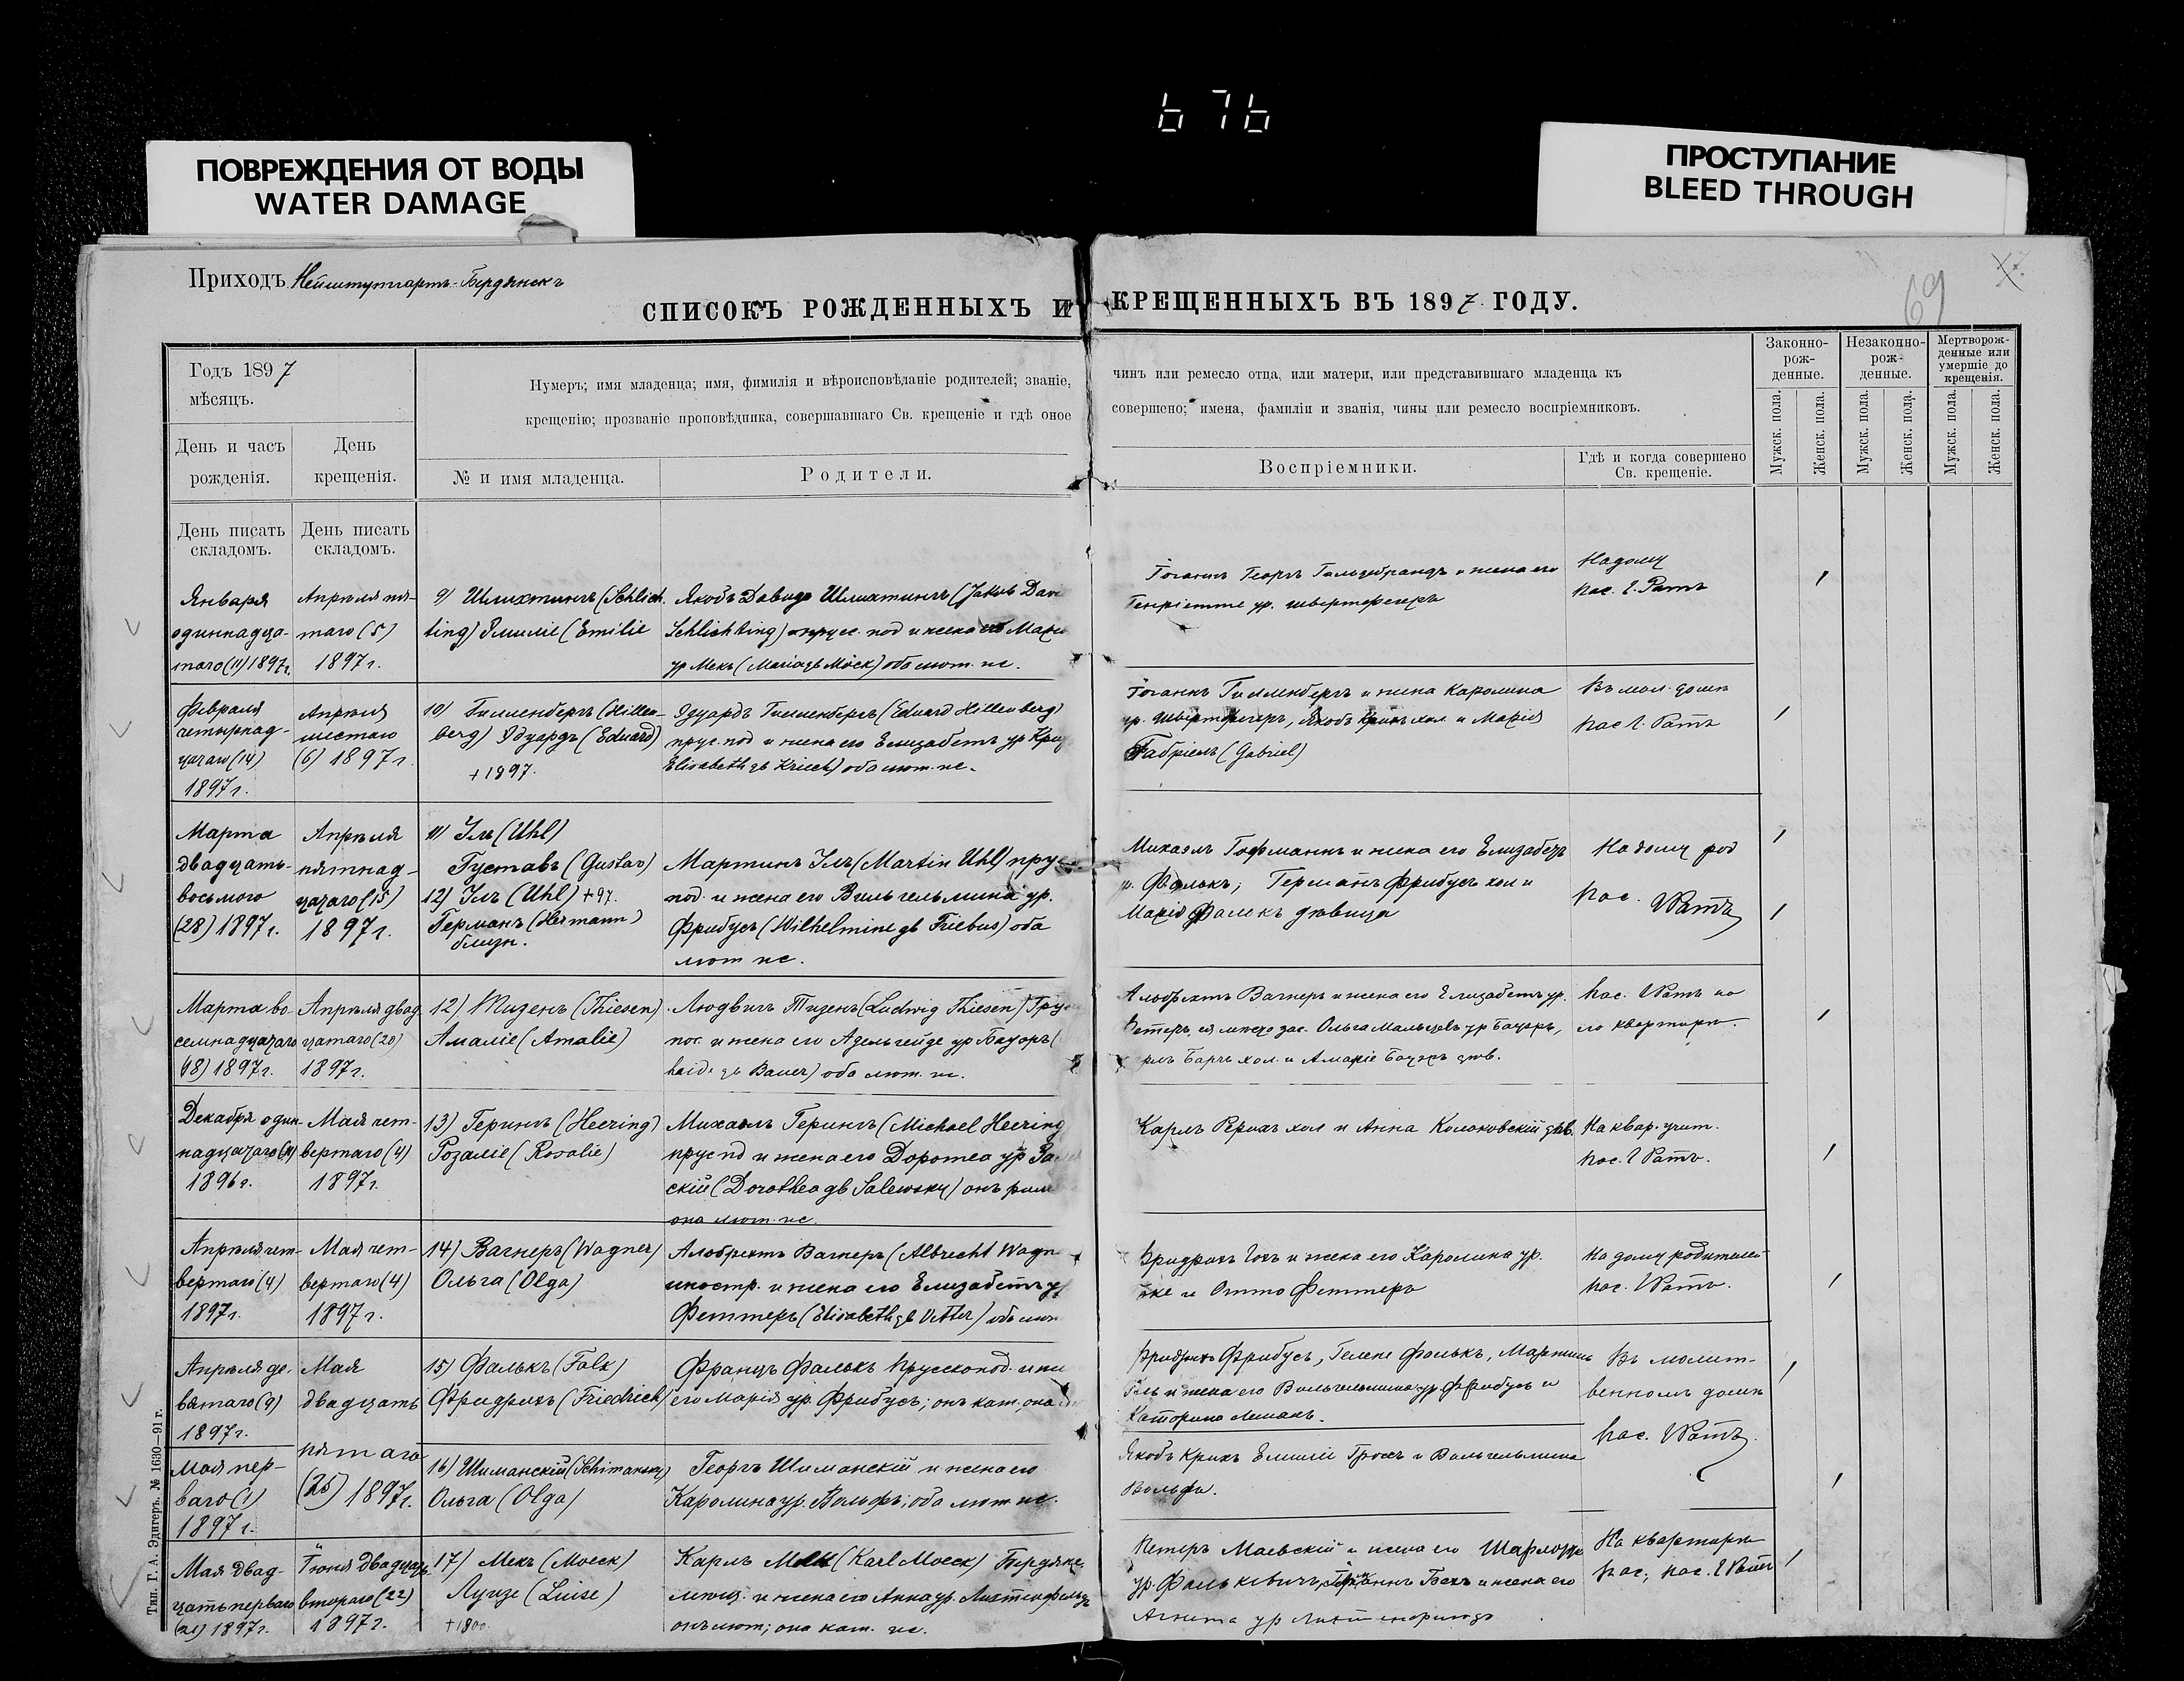 676
ПОВРЕЖДЕНИЯ ОТ ВОДЫ
WATER DAMAGE
ПРОСТУПАНИЕ
BLEED THROUGH
Приходъ Нейштутгартъ-Бердянскъ
69
СПИСОКЪ РОЖДЕННЫХЪ И КРЕЩЕННЫХЪ ВЪ 1897 ГОДУ.
Годъ 1897
мѣсяцъ.
День и часъ
рожденія.
День
крещенія.
Нумеръ; имя младенца; имя, фимилія и вѣроисповѣданіе родителей; званіе,
крещенію; прозваніе проповѣдника, совершавшаго Св. крещеніе и гдѣ оное
№ и имя младенца.
Родители.
чинъ или ремесло отца, или матери, или представившаго младенца къ
совершено; имена, фамиліи и званія, чины или ремесло воспріемниковъ.
Воспріемники.
Гдѣ и когда совершено
Св. крещеніе.
Законно-
рож-
денные.
Незаконно-
рож-
денные.
Мертворож-
денные или
умершіе до
крещенія.
Мужск. пола.
Женск. пола.
Мужск. пола.
Женск. пола.
Мужск. пола.
Женск. пола.
День писать
складомъ.
День писать
складомъ.
Января
одиннадца-
таго (11) 1897г.
Апрѣля пя-
таго (5)
1897г.
9) Шлихтингъ (Schlich
ting) Эмиліе (Emilie
Якобъ Давидъ Шлихтингъ (Jakob Davi
Schlichting) прус. под и жена его
ур Мекъ (Maria gb Moeck) оба лют. ис.
Іоганнъ Георгъ Гильдебрандъ и жена его
Генріетте ур.
На дому
пас. Е. Ратъ
Февраля
четырнад-
цатаго (14)
1897г.
Апрѣля
шестаго
(6) 1897г.
10) Гилленбергъ (Hillen-
berg) Эдуардъ (Eduard)
+1897.
Эдуардъ Гилленбергъ (Eduard Hillenberg)
прус. под и жена его Елизабетъ ур
Elisabeth gb Kriech) оба лют. ис.
Іоганнъ Гилленбергъ и жена Каролина
ур. Якобъ Крихъ хол и Марія
Габріель (Gabriel)
Въ мол. домѣ
пас Е. Ратъ
Марта
двадцать
восьмого
(28) 1897г.
Апрѣля
пятнад-
цатаго (15)
1897г.
11) Улъ (Uhl)
Густавъ (Gustav)
12) Улъ (Uhl) +97.
Германъ (Hermann)
близн.
Мартинъ Улъ (Martin Uhl) прус
под. и жена его Вильгельмина ур.
Фрибусъ (Wilhelmine gb Friebus) оба
лют ис.
Михаэлъ Гофманнъ и жена его Елизабетъ
ур. Фалькъ; Германъ Фрибусъ хол и
Марія Фалькъ дѣвица
На дому род
пас. Е Ратъ
Марта во-
семнадцатаго
(18) 1897г.
Апрѣля двад
цатаго (20)
1897г.
12) Тизенъ (Thiesen)
Амаліе (Amalie)
Людвигъ Тизенъ (Ludwig Thiesen)
пос. и жена его Адельгейде ур Бауэръ (
haide gb Bauer) оба лют. ис.
Альбрехтъ Вагнеръ и жена его Елизабетъ ур.
Феттеръ, Ольга ур Бауеръ,
хол. и Амаліе Бауеръ дѣв.
пас. Е Ратъ на
его квартирѣ.
Декабря один-
надцатаго (11)
1896г.
Мая чет-
вертаго (4)
1897г.
13) Герингъ (Heering)
Розаліе (Rosalie)
Михаэлъ Герингъ (Michael Heering
прус пд и жена его Доротеа ур За
скій (Dorothea gb Salewsky) онъ рим
она лют. ис.
Карлъ хол и Анна дѣв.
На квар. учит.
пас. Е Ратъ.
Апрѣля чет-
вертаго (4)
1897г.
Мая чет-
вертаго (4)
1897г.
14) Вагнеръ (Wagner)
Ольга (Olga)
Алобрехтъ Вагнеръ (Albrecht Wagn
иностр. и жена его Елизабетъ ур
Феттеръ (Elisabeth gb Vetter) оба лют
Фридрихъ и жена его Каролина ур.
и Отто Феттеръ
На дому родителей
пас. Е Ратъ.
Апрѣля де-
вятаго (9)
1897г.
Мая
двадцать
пятаго
(25) 1897г.
15) Фалькъ (Falk)
Фридрихъ (Friedrich)
Францъ Фалькъ прусспод. и
его Марія ур. Фрибусъ; онъ кат, она
Фридрихъ Фрибусъ, Гелене Фалькъ, Мартинъ
Улъ и жена его Вильгельмина ур Фрибусъ и
Катарина Леманъ.
Въ молит-
венномъ домѣ
пас. Е Ратъ.
Мая пер-
ваго (1)
1897г.
16) Шиманскій (Schimansky)
Ольга (Olga)
Георгъ Шиманскій и жена его
Каролина ур. Вольфъ; оба лют. ис.
Якобъ Крихъ Емиліе и Вильгельмина
Вольфъ.
Мая двад-
цать перваго
(21) 1897г.
Іюня двадцать
второго (22)
1897г.
17) Мекъ (Moeck)
Луизе (Luise)
+1800.
Карлъ Мекъ (Karl Moeck)
и жена его Анна ур. Лихтенфельдъ
онъ лют; она кат. ис.
Петеръ Маевскій и жена его Шарлотте
ур. Фалькевичъ, и жена его
Агнета ур
На квартирѣ
пас; пас. Е Ратъ
Тип. Г. А. Эдигеръ. № 1630—91 г.